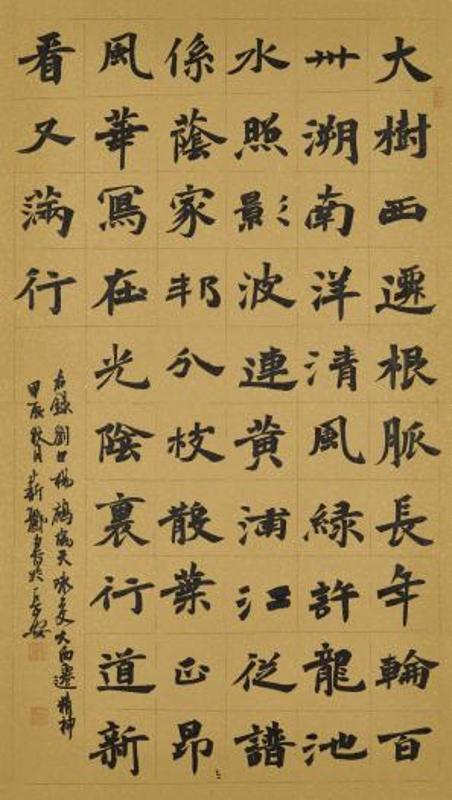 大樹西遷根脈長年輪百
卅溯南洋清風綠許龍池
水照影波連黃浦江從譜
係蔭家邦分枝散葉正昂
風華寫在光陰裏行道新
看又滿行
右錄劉楊鷓鴣天咏交大西遷精神
甲辰秋月書於長安